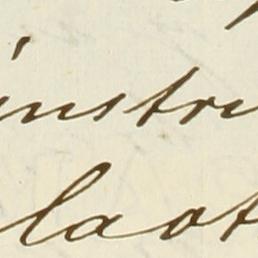 instru
laat